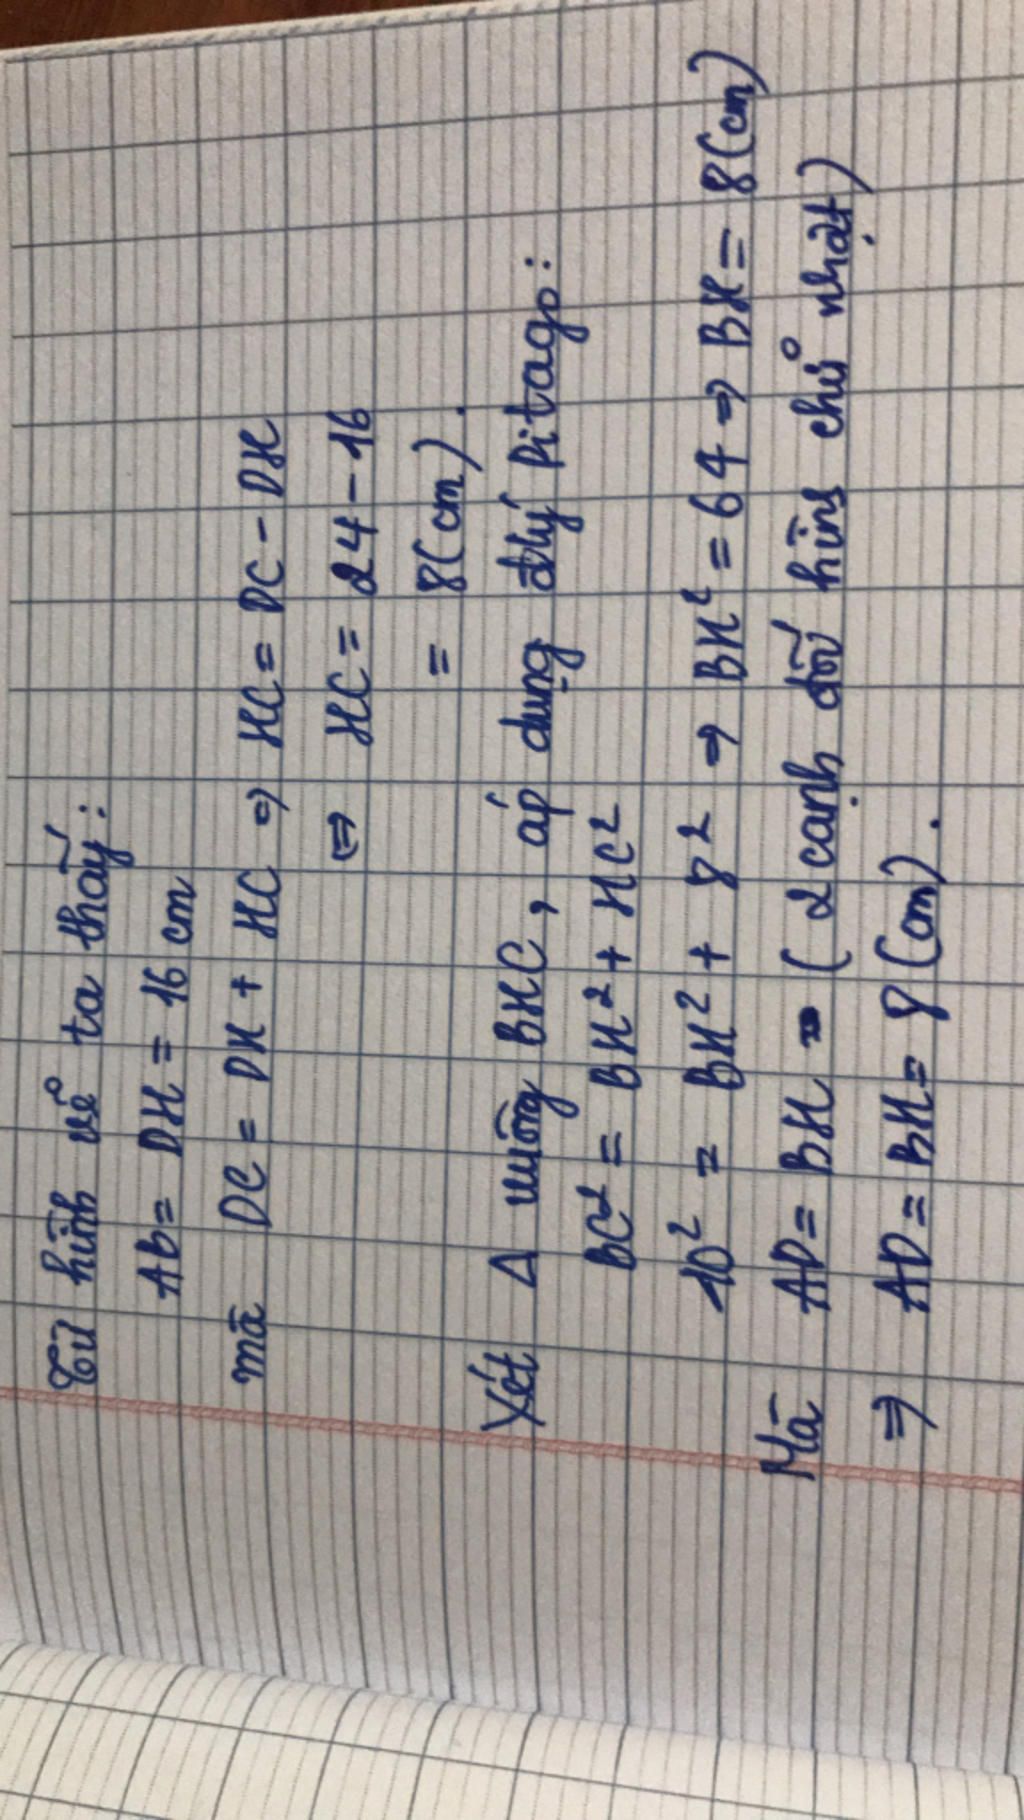 Từ hình vẽ ta thấy:
AB = DH = 16 cm
mà DC = DH + HC ⇒ HC = DC - DH
⇔ HC = 24 - 16
= 8 (cm).
Xét Δ vuông BHC, áp dụng đlý Pitago:
BC² = BH² + HC²
10² = BH² + 8² ⇒ BH² = 64 ⇒ BH = 8 (cm)
Mà AD = BH (2 cạnh đối hình chữ nhật)
⇒ AD = BH = 8 (cm).